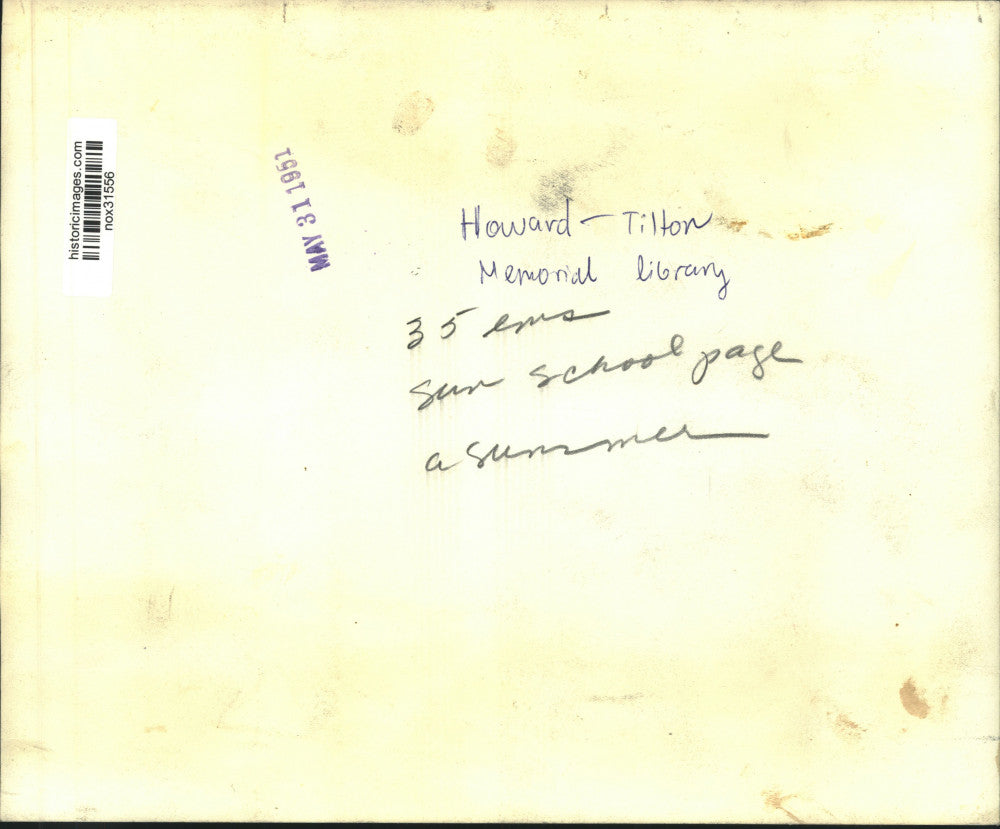 historicimages.com
nox31556
MAY 31 1951
Howard - Tilton
Memorial library
35 ems
Sun School page
a Summer